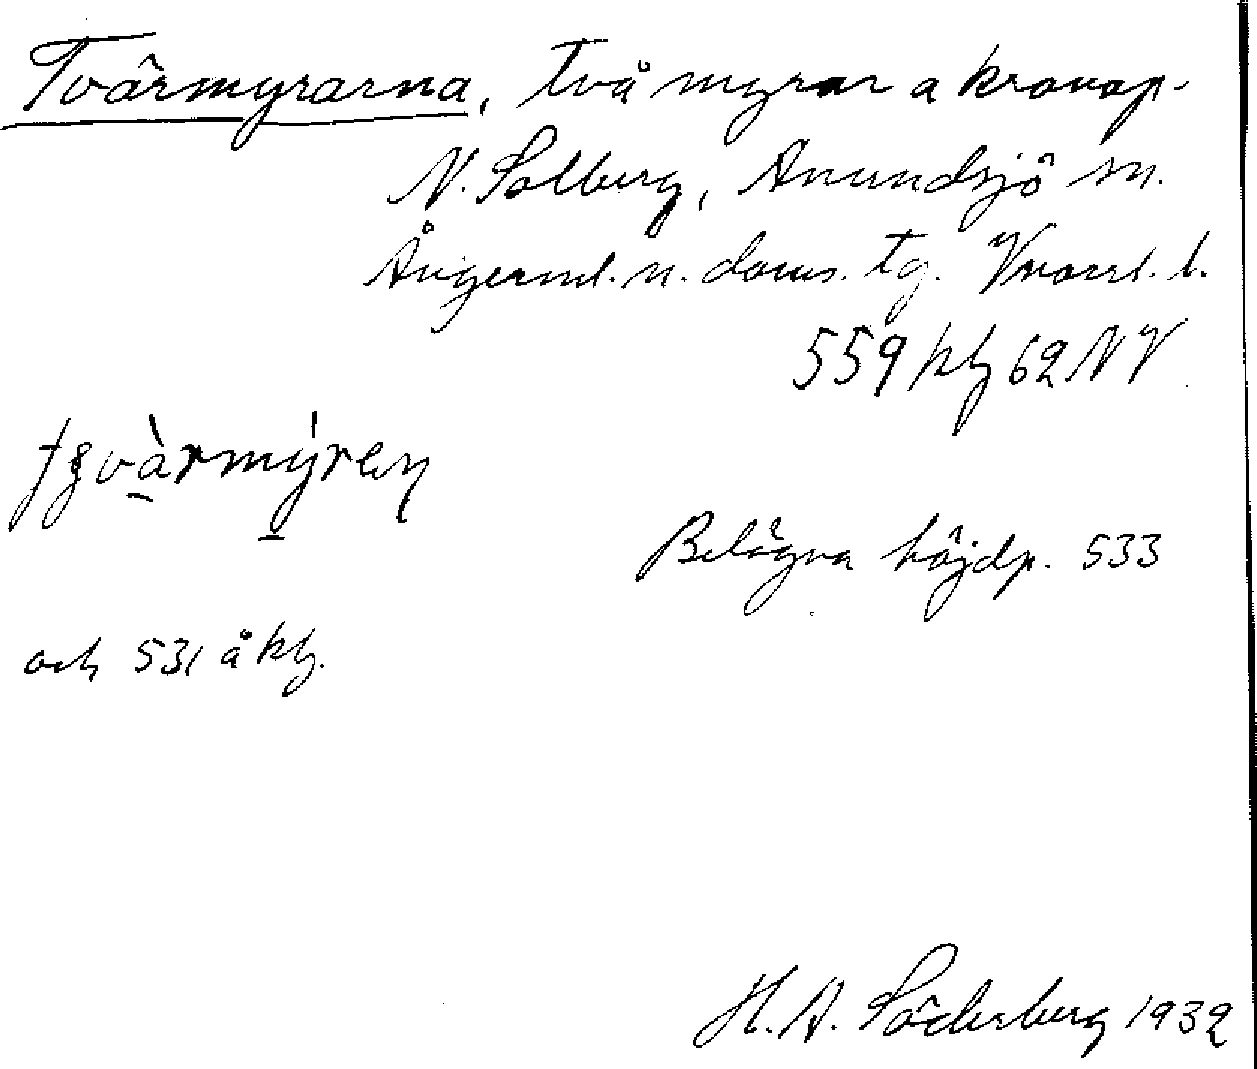 Tvärmyrarna, två myrar a kronop.
N. Solberg, Anundsjö sn.
Ångerml. n. doms. tg. Vnorrl. l.
559 kbl 62 NV
tvàrmýren
Belägna höjdp. 533
och 531 å kbl.
H. A. Söderberg 1932